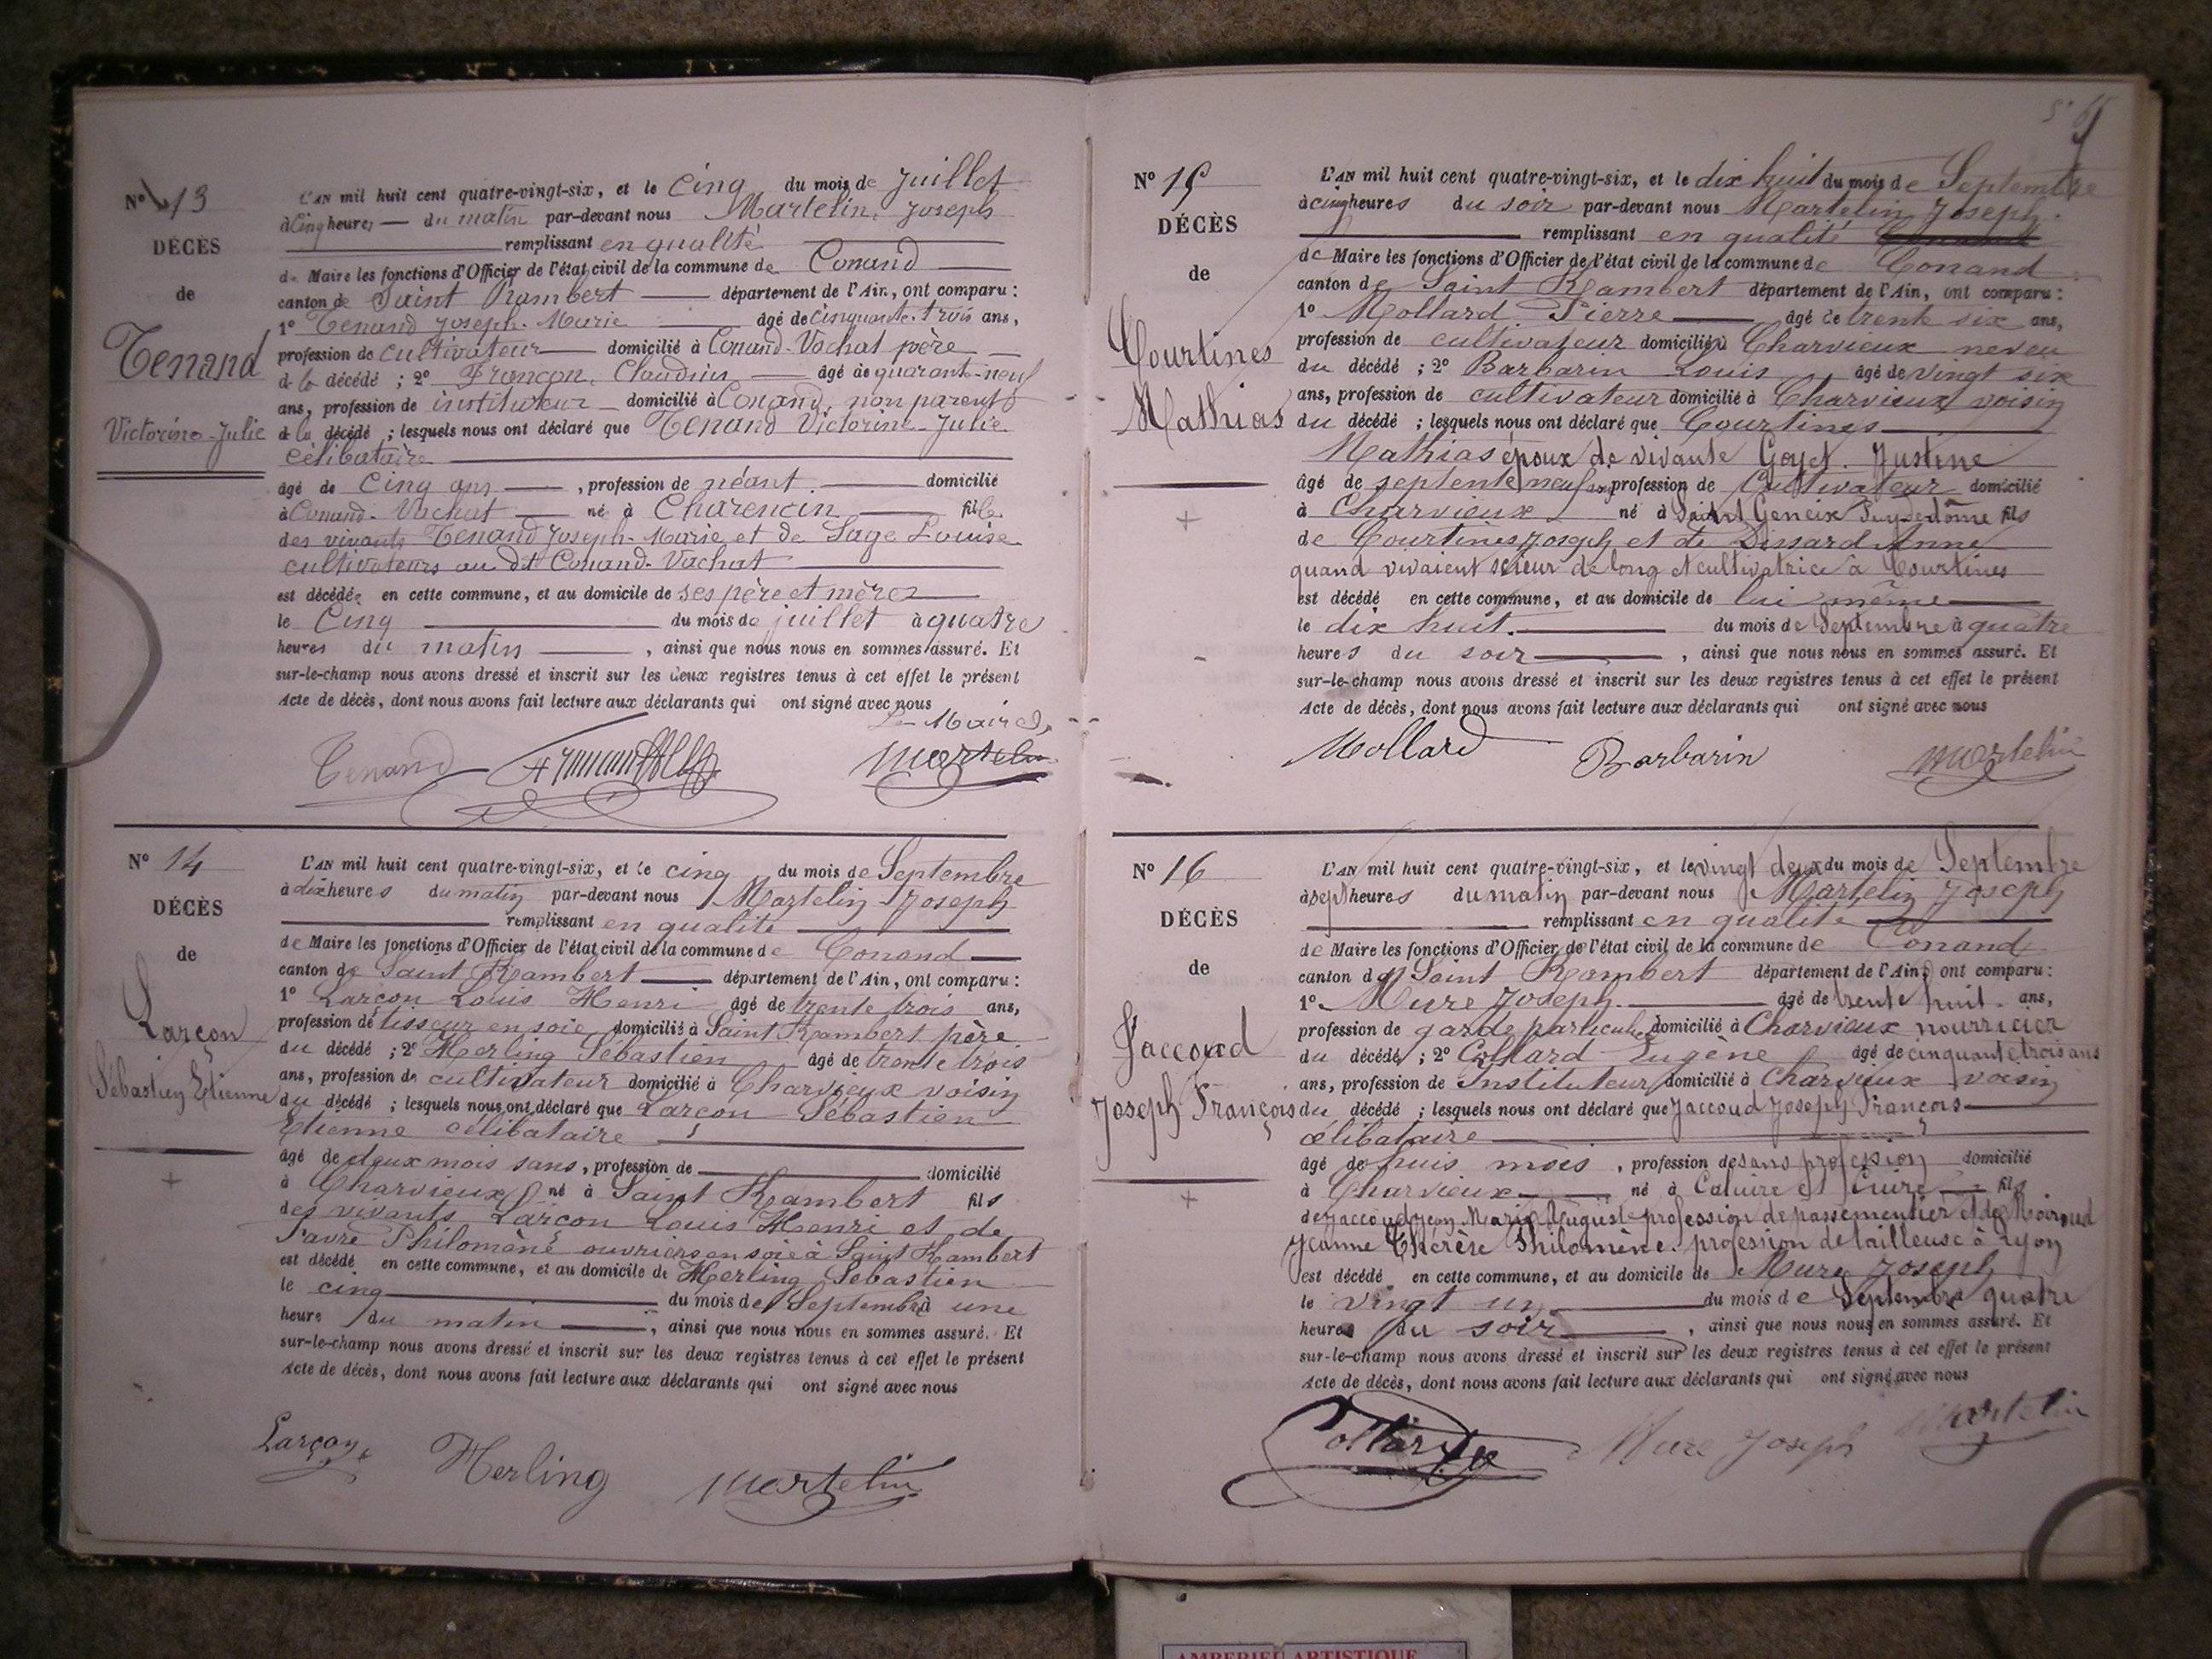 N° 13
DÉCÈS
de
Tenand
Victorine-Julie
L'AN mil huit cent quatre-vingt-six, et le cinq du mois de Juillet
à cinq heures du matin par-devant nous Martelin, Joseph
remplissant en qualité
de Maire les fonctions d'Officier de l'état civil de la commune de Conand
canton de Saint Rambert département de l'Ain, ont comparu :
1° Tenand Joseph-Marie âgé de cinquante-trois ans,
profession de cultivateur domicilié à Conand-Vachat père
de la décédé ; 2° Françon, Claudius âgé de quarante-neuf
ans, profession de instituteur domicilié à Conand, non parent
de la décédé ; lesquels nous ont déclaré que Tenand Victorine-Julie
célibataire
âgé de cinq ans , profession de néant. domicilié
à Conand-Vachat né à Charencin fille
des vivants Tenand Joseph-Marie et de Sage Louise
cultivateurs au dit Conand-Vachat
est décédée en cette commune, et au domicile de ses père et mère
le cinq du mois de juillet à quatre
heures du matin , ainsi que nous nous en sommes assuré. Et
sur-le-champ nous avons dressé et inscrit sur les deux registres tenus à cet effet le présent
Acte de décès, dont nous avons fait lecture aux déclarants qui ont signé avec nous
Le Maire
Tenand Martelin
N° 14
DÉCÈS
de
Larçon
Sébastien Etienne
L'AN mil huit cent quatre-vingt-six, et le cinq du mois de Septembre
à dix heures du matin par-devant nous Martelin Joseph
remplissant en qualité
de Maire les fonctions d'Officier de l'état civil de la commune de Conand
canton de Saint Rambert département de l'Ain, ont comparu :
1° Larçon Louis Henri âgé de trente trois ans,
profession de tisseur en soie domicilié à Saint Rambert père
du décédé ; 2° Herling Sébastien âgé de trente trois
ans, profession de cultivateur domicilié à Charvieux voisin
du décédé ; lesquels nous ont déclaré que Larçon Sébastien
Etienne célibataire
âgé de deux mois sans , profession de domicilié
à Charvieux né à Saint Rambert fils
des vivants Larçon Louis Henri et de
Favre Philomène ouvriers en soie à Saint Rambert
est décédé en cette commune, et au domicile de Herling Sébastien
le cinq du mois de Septembre à une
heure du matin , ainsi que nous nous en sommes assuré. Et
sur-le-champ nous avons dressé et inscrit sur les deux registres tenus à cet effet le présent
Acte de décès, dont nous avons fait lecture aux déclarants qui ont signé avec nous
Larçon Herling Martelin
N° 15
DÉCÈS
de
Courtines
Mathias
L'AN mil huit cent quatre-vingt-six, et le dix huit du mois de Septembre
à cinq heures du soir par-devant nous Martelin Joseph.
remplissant en qualité
de Maire les fonctions d'Officier de l'état civil de la commune de Conand
canton de Saint Rambert département de l'Ain, ont comparu :
1° Mollard Pierre âgé de trente six ans,
profession de cultivateur domicilié à Charvieux neveu
du décédé ; 2° Barbarin Louis âgé de vingt six
ans, profession de cultivateur domicilié à Charvieux voisin
du décédé ; lesquels nous ont déclaré que Courtines
Mathias époux de vivante Goyet Justine
âgé de septente neuf ans profession de Cultivateur domicilié
à Charvieux né à Saint Geneix Puy-de-dôme fils
de Courtines Joseph et de Dessard Anne
quand vivaient scieur de long et cultivatrice à Courtines
est décédé en cette commune, et au domicile de lui même
le dix huit. du mois de Septembre à quatre
heures du soir , ainsi que nous nous en sommes assuré. Et
sur-le-champ nous avons dressé et inscrit sur les deux registres tenus à cet effet le présent
Acte de décès, dont nous avons fait lecture aux déclarants qui ont signé avec nous
Mollard Barbarin Martelin
N° 16
DÉCÈS
de
Jaccoud
Joseph François
L'AN mil huit cent quatre-vingt-six, et le vingt deux du mois de Septembre
à sept heures du matin par-devant nous Martelin Joseph
remplissant en qualité
de Maire les fonctions d'Officier de l'état civil de la commune de Conand
canton de Saint Rambert département de l'Ain, ont comparu :
1° Mure Joseph. âgé de trente huit ans,
profession de garde particulier domicilié à Charvieux nourricier
du décédé ; 2° Collard Eugène âgé de cinquante trois ans
ans, profession de Instituteur domicilié à Charvieux voisin
du décédé ; lesquels nous ont déclaré que Jaccoud Joseph François
célibataire
âgé de huis mois , profession de sans profession domicilié
à Charvieux né à Caluire et Cuire fils
de Jaccoud Jean Marie Auguste profession de passementier et de Noiroud
Jeanne Thérèse Philomène. profession de tailleuse à Lyon
est décédé en cette commune, et au domicile de Mure Joseph
le vingt un du mois de Septembre quatre
heures du soir , ainsi que nous nous en sommes assuré. Et
sur-le-champ nous avons dressé et inscrit sur les deux registres tenus à cet effet le présent
Acte de décès, dont nous avons fait lecture aux déclarants qui ont signé avec nous
Collard Mure Joseph Martelin
AMBERIEU ARTISTIQUE